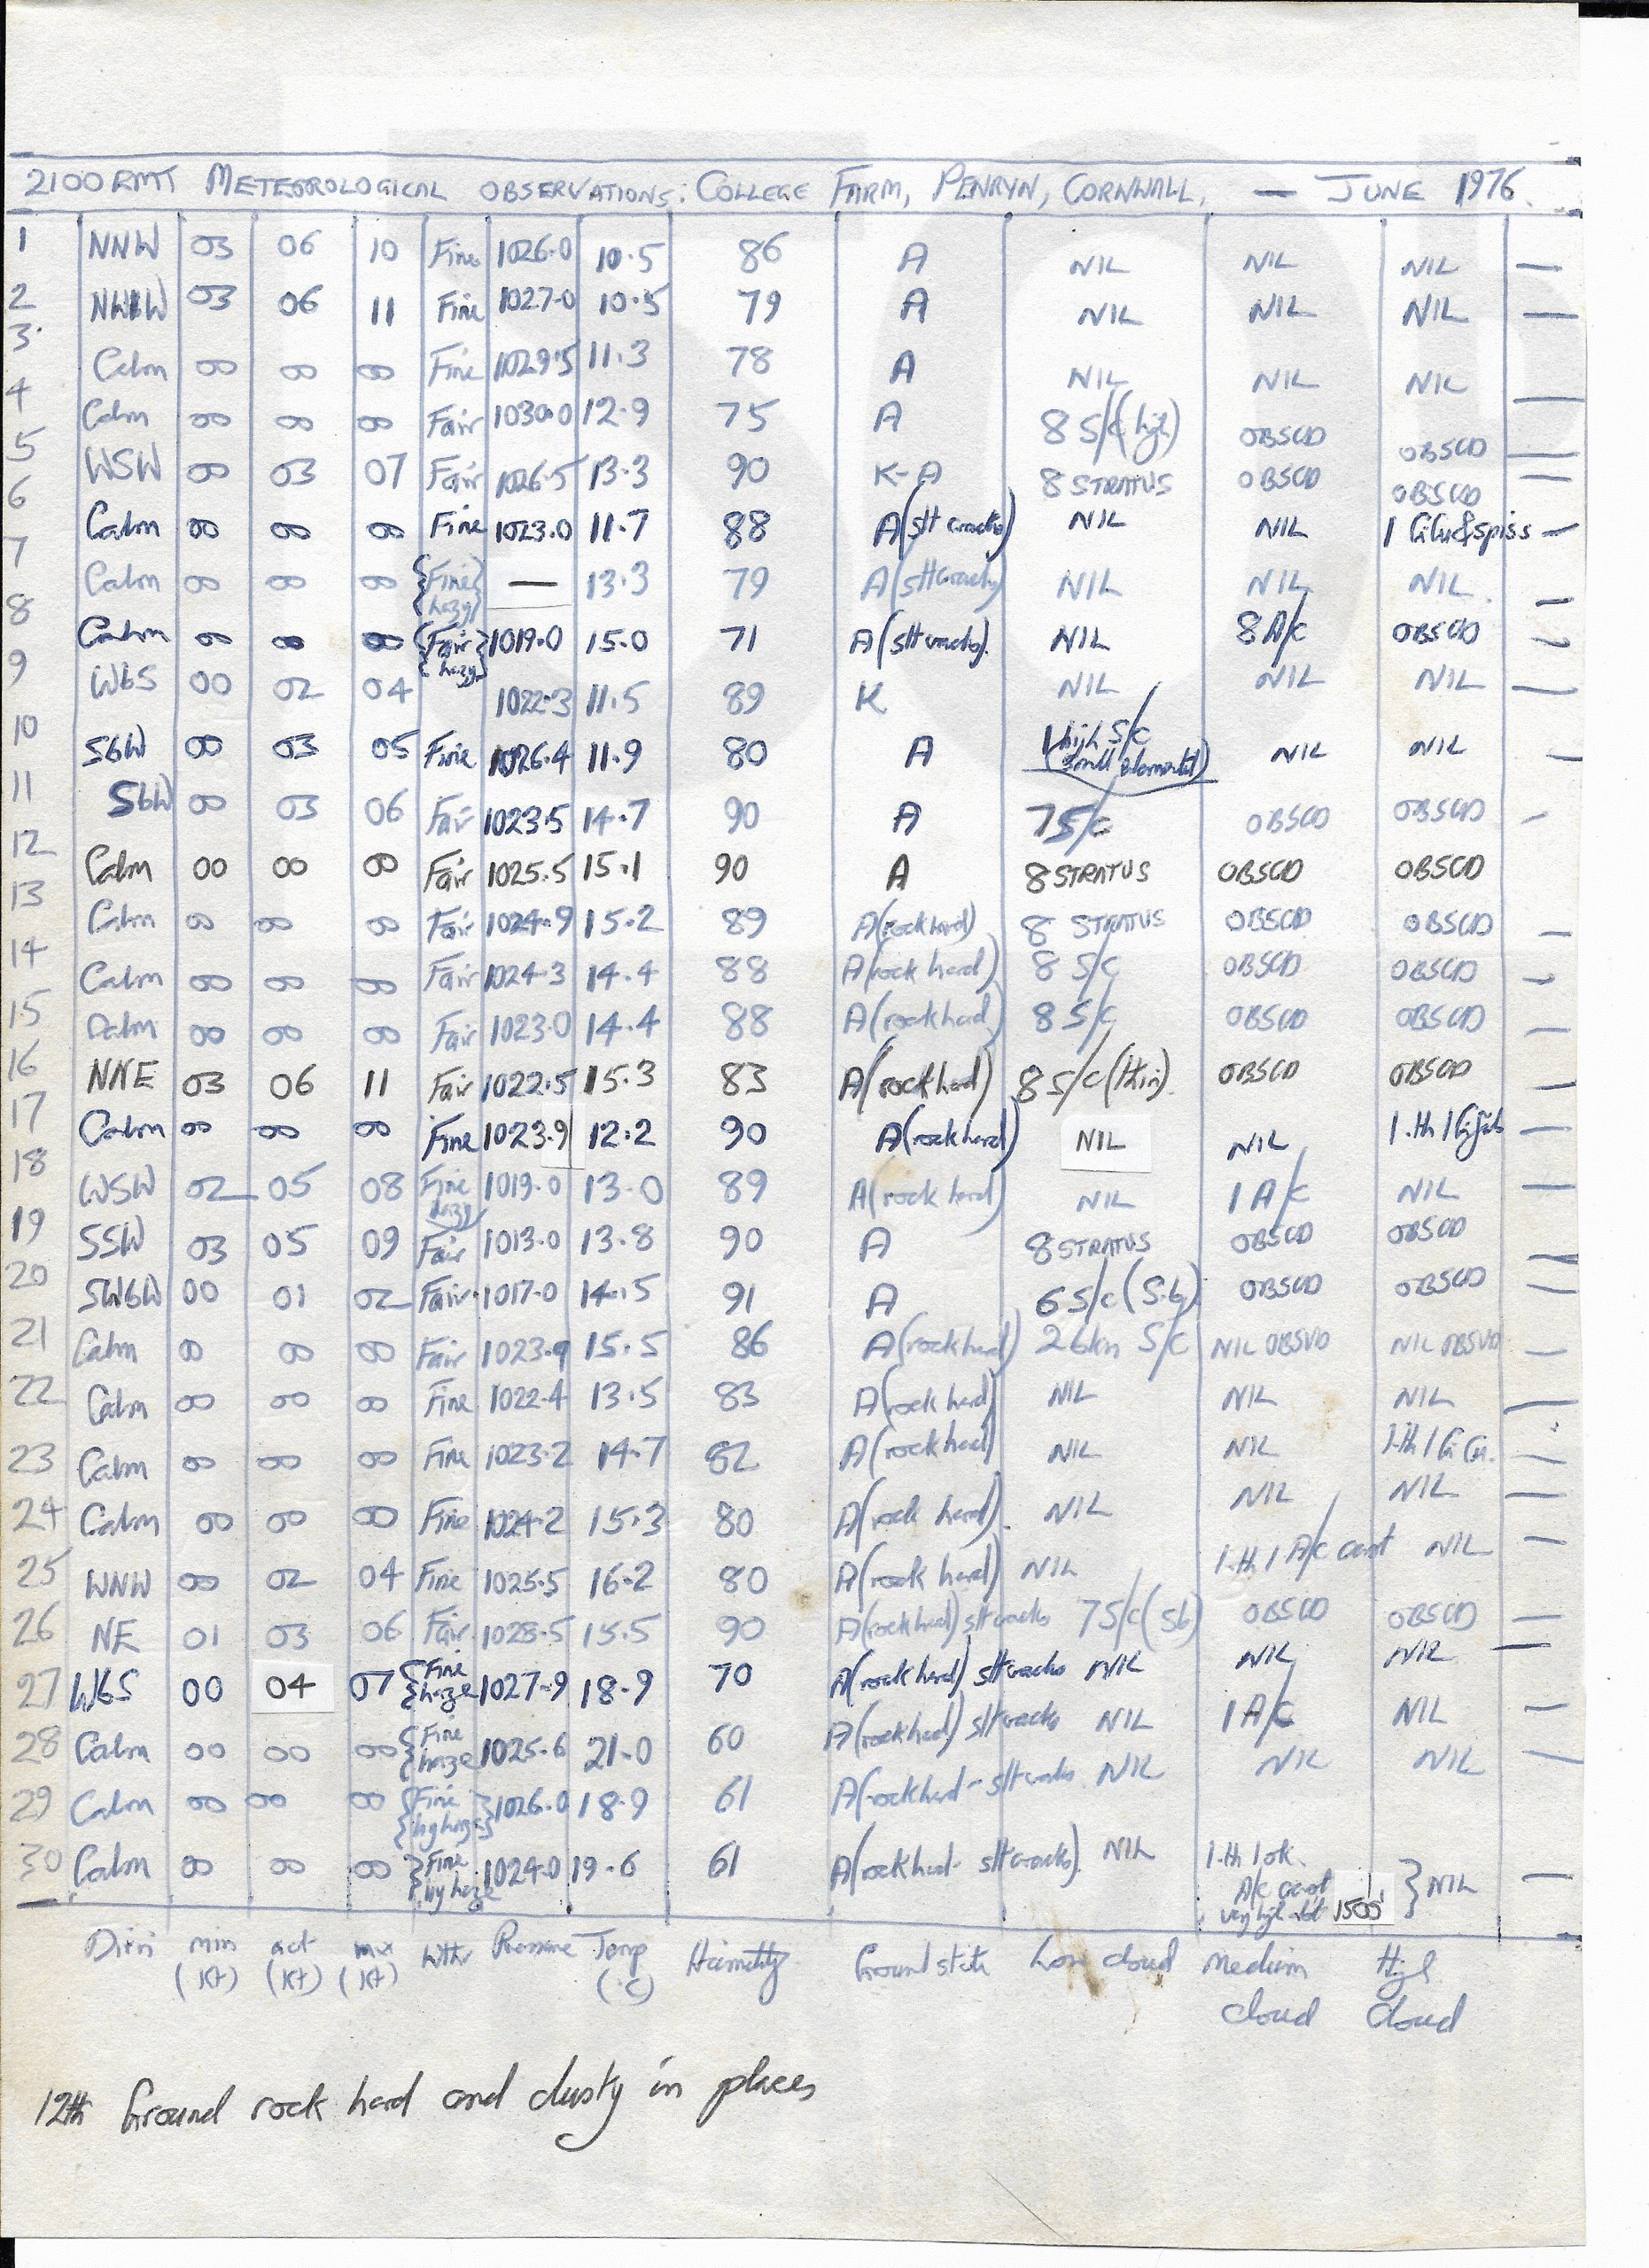 2100 GMT METEOROLOGICAL OBSERVATIONS: COLLEGE FARM, PENRYN, CORNWALL, — JUNE 1976.
1 NNW 03 06 10 Fine 1026.0 10.5 86 A NIL NIL NIL —
2 NWbW 03 06 11 Fine 1027.0 10.5 79 A NIL NIL NIL —
3 Calm 00 00 00 Fine 1029.5 11.3 78 A NIL NIL NIL —
4 Calm 00 00 00 Fair 1030.0 12.9 75 A 8 S/C (high) OBSCD OBSCD —
5 WSW 00 03 07 Fair 1026.5 13.3 90 K-A 8 STRATUS OBSCD OBSCD —
6 Calm 00 00 00 Fine 1023.0 11.7 88 A (slt cracks) NIL NIL 1 &spiss —
7 Calm 00 00 00 {Fine hazy} — 13.3 79 A (slt cracks) NIL NIL NIL. —
8 Calm 00 00 00 {Fair hazy} 1019.0 15.0 71 A (slt cracks). NIL 8 A/C OBSCD —
9 WbS 00 02 04 1022.3 11.5 89 K NIL NIL NIL —
10 SbW 00 03 05 Fine 1026.4 11.9 80 A 1 high S/C (small ) NIL NIL —
11 SbW 00 03 06 Fair 1023.5 14.7 90 A 7 S/C OBSCD OBSCD —
12 Calm 00 00 00 Fair 1025.5 15.1 90 A 8 STRATUS OBSCD OBSCD
13 Calm 00 00 00 Fair 1024.9 15.2 89 A (rock hard) 8 STRATUS OBSCD OBSCD —
14 Calm 00 00 00 Fair 1024.3 14.4 88 A (rock hard) 8 S/C OBSCD OBSCD —
15 Calm 00 00 00 Fair 1023.0 14.4 88 A (rock hard) 8 S/C OBSCD OBSCD —
16 NNE 03 06 11 Fair 1022.5 15.3 83 A (rock hard) 8 S/C (thin). OBSCD OBSCD —
17 Calm 00 00 00 Fine 1023.9 12.2 90 A (rock hard) NIL NIL 1.th 1 —
18 WSW 02 05 08 Fine hazy 1019.0 13.0 89 A (rock hard) NIL 1 A/C NIL —
19 SSW 03 05 09 Fair 1013.0 13.8 90 A 8 STRATUS OBSCD OBSCD —
20 SWbW 00 01 02 Fair 1017.0 14.5 91 A 6 S/C (S.b) OBSCD OBSCD —
21 Calm 00 00 00 Fair 1023.9 15.5 86 A (rock hard) 2 S/C NIL OBSVD NIL OBSVD —
22 Calm 00 00 00 Fine 1022.4 13.5 83 A (rock hard) NIL NIL NIL —
23 Calm 00 00 00 Fine 1023.2 14.7 82 A (rock hard) NIL NIL 1.th 1 —
24 Calm 00 00 00 Fine 1024.2 15.3 80 A (rock hard). NIL NIL NIL —
25 WNW 00 02 04 Fine 1025.5 16.2 80 A (rock hard) NIL 1.th 1 A/C cast NIL —
26 NE 01 03 06 Fair 1028.5 15.5 90 A (rock hard) slt cracks 7 S/C (Sb) OBSCD OBSCD —
27 WbS 00 04 07 {Fine haze 1027.9 18.9 70 A (rock hard) slt cracks NIL NIL NIL —
28 Calm 00 00 00 {Fine haze 1025.6 21.0 60 A (rock hard) slt cracks NIL 1 A/C NIL —
29 Calm 00 00 00 {Fine hvy haze} 1026.0 18.9 61 A (rock hard - slt cracks NIL NIL NIL —
30 Calm 00 00 00 {Fine hvy haze 1024.0 19.6 61 A (rock hard - slt cracks). NIL 1.th 1 ok. A/C cast very high 1500' } NIL —
Dirn min (kt) act (kt) mx (kt) Wthr Pressure Temp (°C) Humidity Ground state Low cloud Medium cloud High cloud
12th Ground rock hard and dusty in places